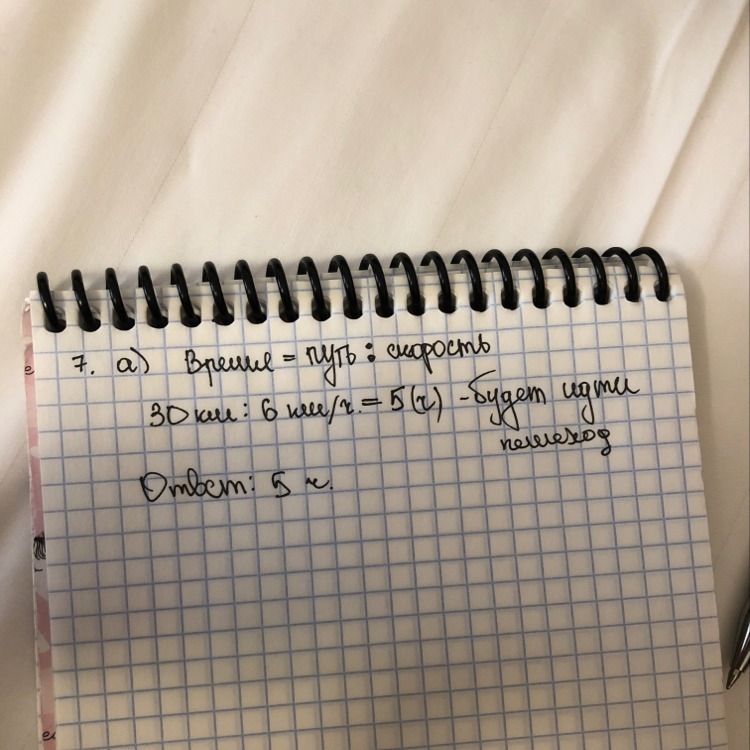 7. а) Время = путь : скорость
30 км : 6 км/ч = 5 (ч) - будет идти
пешеход
Ответ: 5 ч.